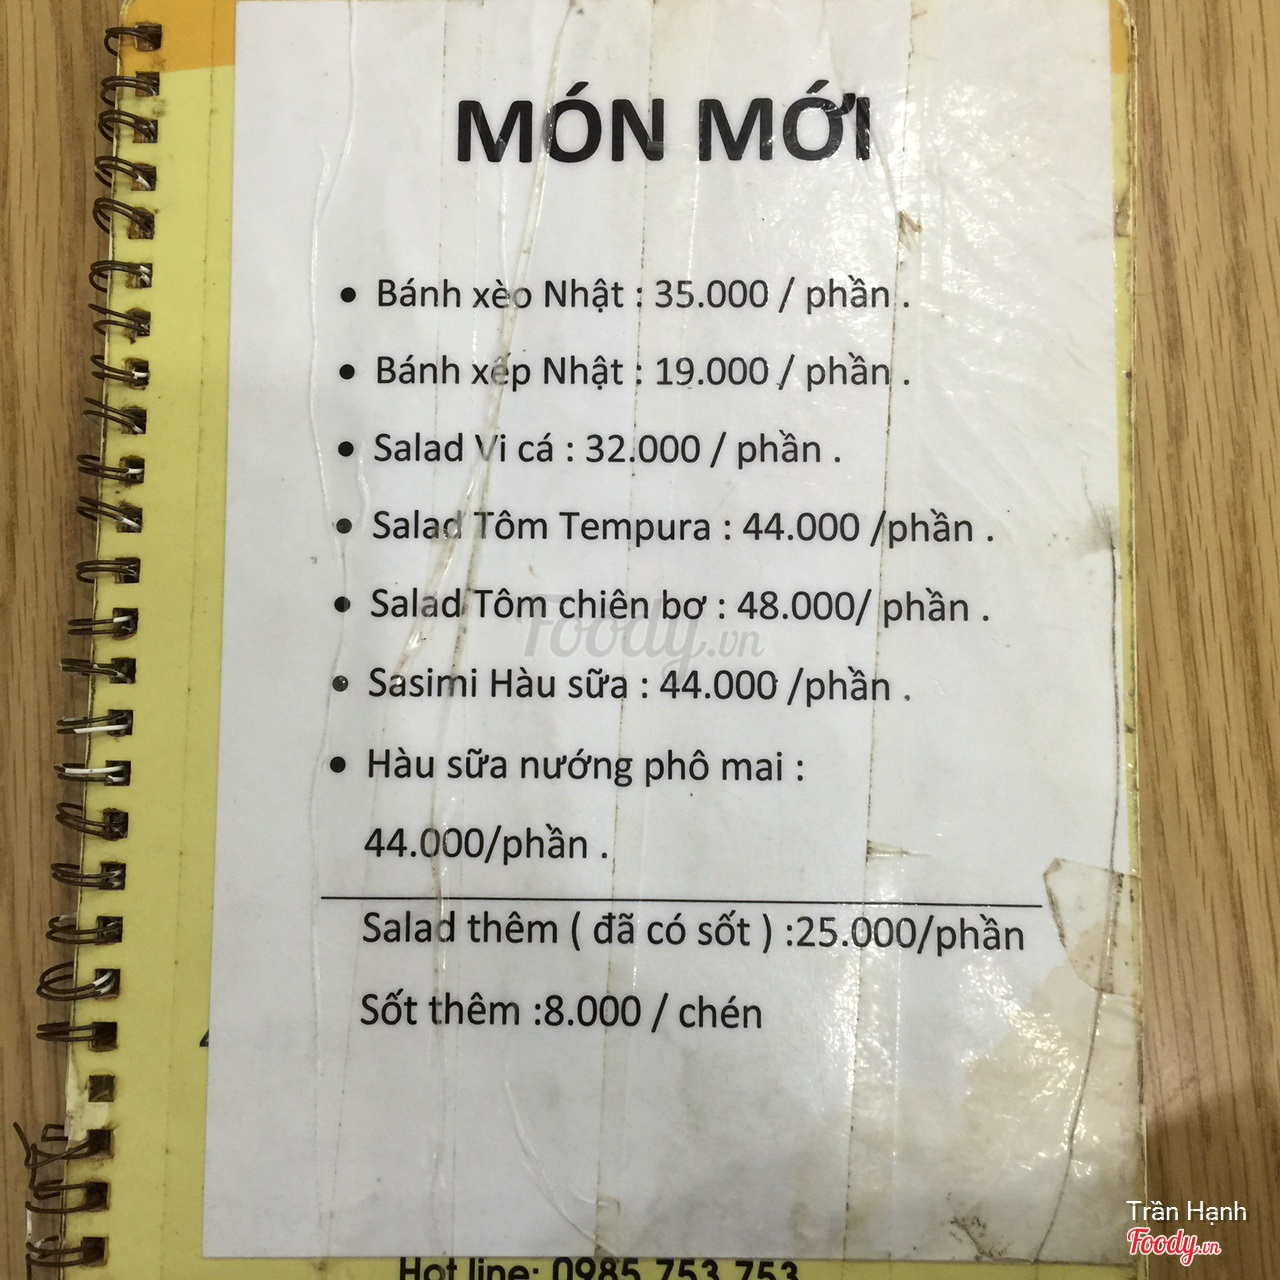 MÓN MỚI
• Bánh xèo Nhật : 35.000 / phần .
• Bánh xếp Nhật : 19.000 / phần .
• Salad Vi cá : 32.000 / phần .
• Salad Tôm Tempura : 44.000 /phần .
• Salad Tôm chiên bơ : 48.000/ phần .
• Sasimi Hàu sữa : 44.000 /phần .
• Hàu sữa nướng phô mai :
44.000/phần .
Salad thêm ( đã có sốt ) :25.000/phần
Sốt thêm :8.000 / chén
Hot line: 0985 753 753
Foody.vn
Trần Hạnh
Foody.vn